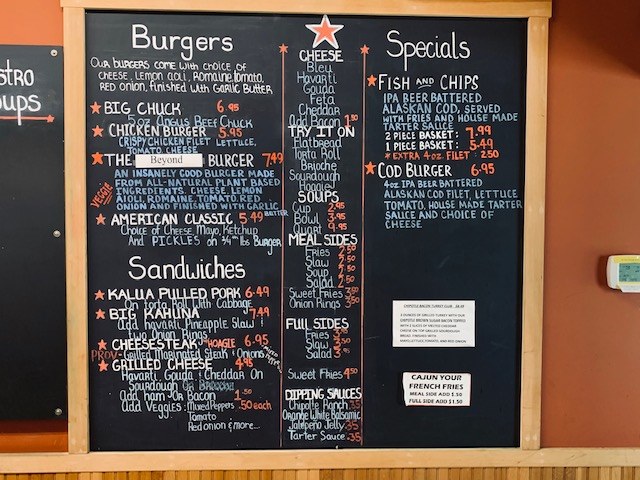 stro
ups
Burgers
Our burgers come with choice of
cheese, Lemon aoli, Romaine, tomato,
red onion, finished with Garlic Butter
BIG CHUCK 6.95
5 oz Angus Beef Chuck
CHICKEN BURGER 5.95
Crispy Chicken Filet Lettuce,
Tomato, Cheese
THE Beyond BURGER 7.49
VEGGIE
AN INSANELY GOOD BURGER MADE
FROM ALL-NATURAL PLANT BASED
INGREDIENTS. CHEESE, LEMON
AIOLI, ROMAINE, TOMATO, RED
ONION AND FINISHED WITH GARLIC BUTTER
AMERICAN CLASSIC 5.49
Choice of Cheese, Mayo, Ketchup
And PICKLES on 3/4 lb Burger
Sandwiches
KALUA PULLED PORK 6.49
On torta Roll With Cabbage
BIG KAHUNA 7.49
Add havarti, Pineapple Slaw &
two Onion Rings
CHEESESTEAK HOAGIE 6.95
PROV- Grilled Marinated Steak & Onions
GRILLED CHEESE 4.95
Havarti, Gouda & Cheddar On
Sourdough Or
Add ham Or Bacon 1.50
Add Veggies: Mixed Peppers .50 each
Tomato
Red onion & more...
CHEESE
Bleu
Havarti
Gouda
Feta
Cheddar
Add Bacon 1.50
TRY IT ON
Flatbread
Torta Roll
Brioche
Sourdough
Hoagie
SOUPS
Cup 2.95
Bowl 3.95
Quart 9.95
MEAL SIDES
Fries 2.50
Slaw 2.50
Soup 2.50
Salad 2.50
Sweet Fries 3.50
Onion Rings 3.50
FULL SIDES
Fries
Slaw
Salad
Sweet Fries 4.50
DIPPING SAUCES
Chipotle Ranch .35
Orange White Balsamic
Jalapeño Jelly .35
Tarter Sauce .35
Specials
FISH AND CHIPS
IPA BEER BATTERED
ALASKAN COD, SERVED
WITH FRIES AND HOUSE MADE
TARTER SAUCE
2 PIECE BASKET: 7.99
1 PIECE BASKET: 5.49
* EXTRA 4 OZ. FILET : 2.50
COD BURGER 6.95
4oz IPA BEER BATTERED
ALASKAN COD FILET, LETTUCE
TOMATO, HOUSE MADE TARTER
SAUCE AND CHOICE OF
CHEESE
CAJUN YOUR
FRENCH FRIES
MEAL SIDE ADD $.50
FULL SIDE ADD $1.50